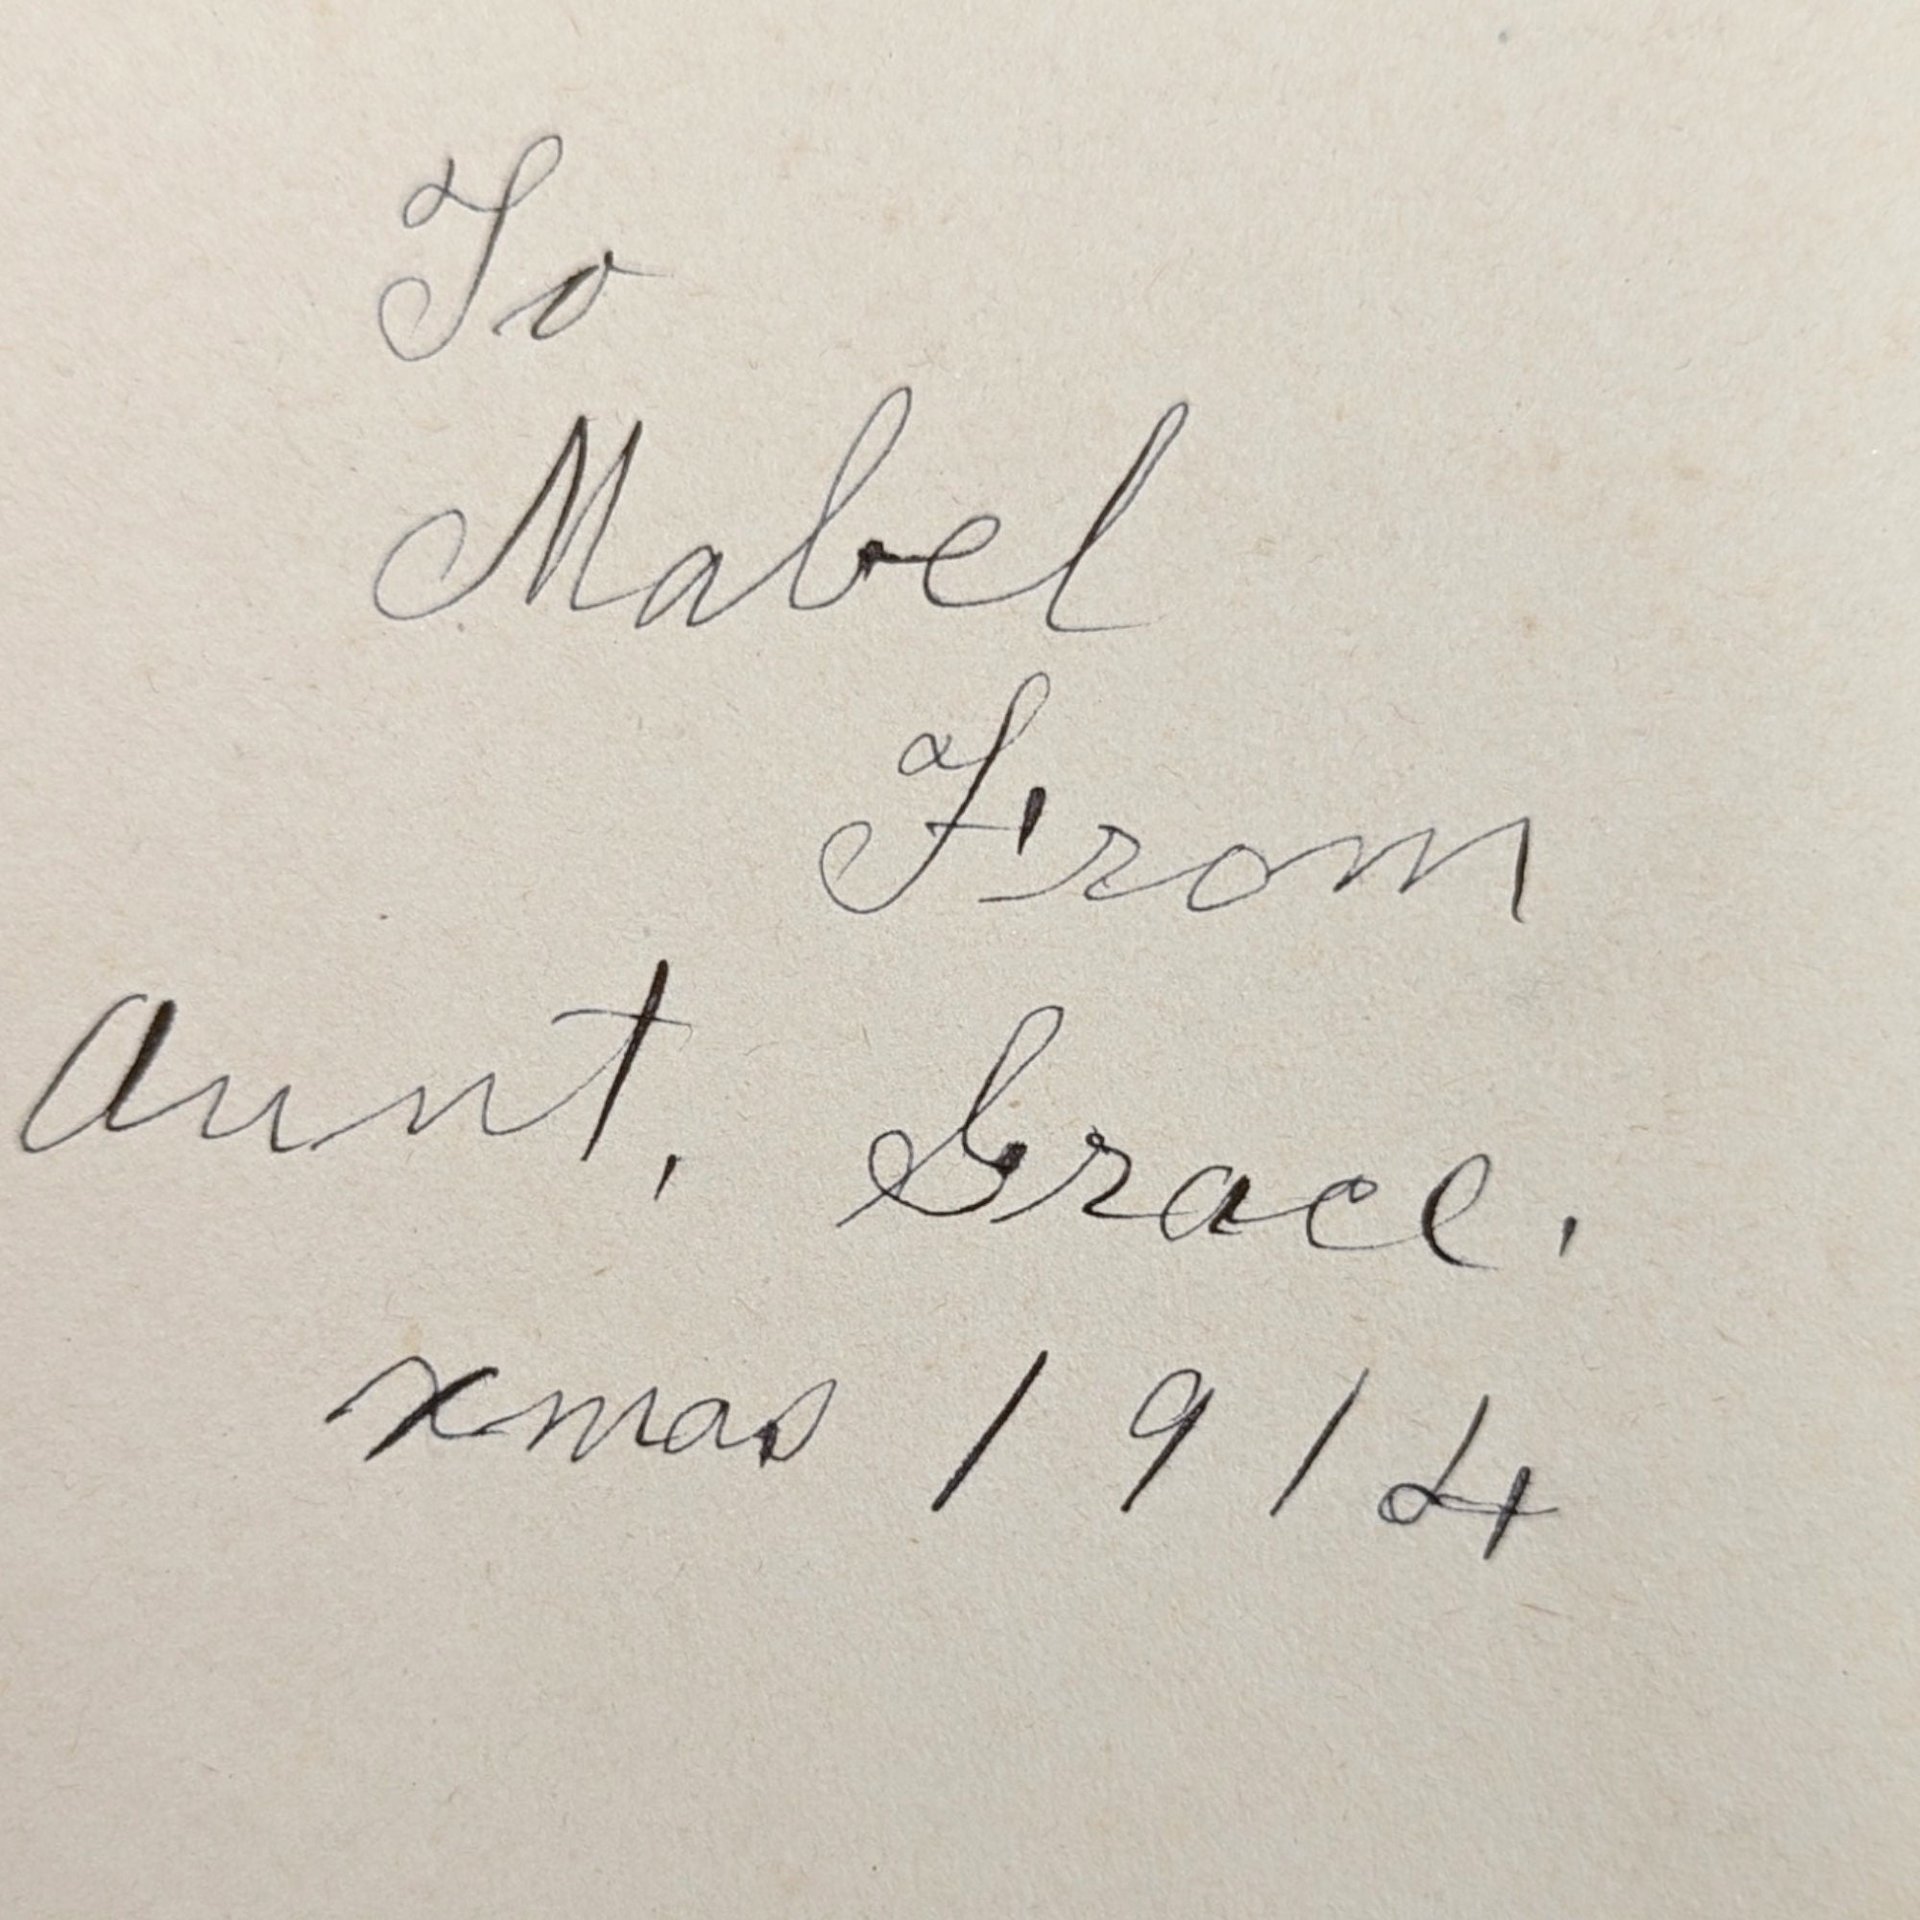 To
Mabel
From
Aunt, Grace.
xmas 1914